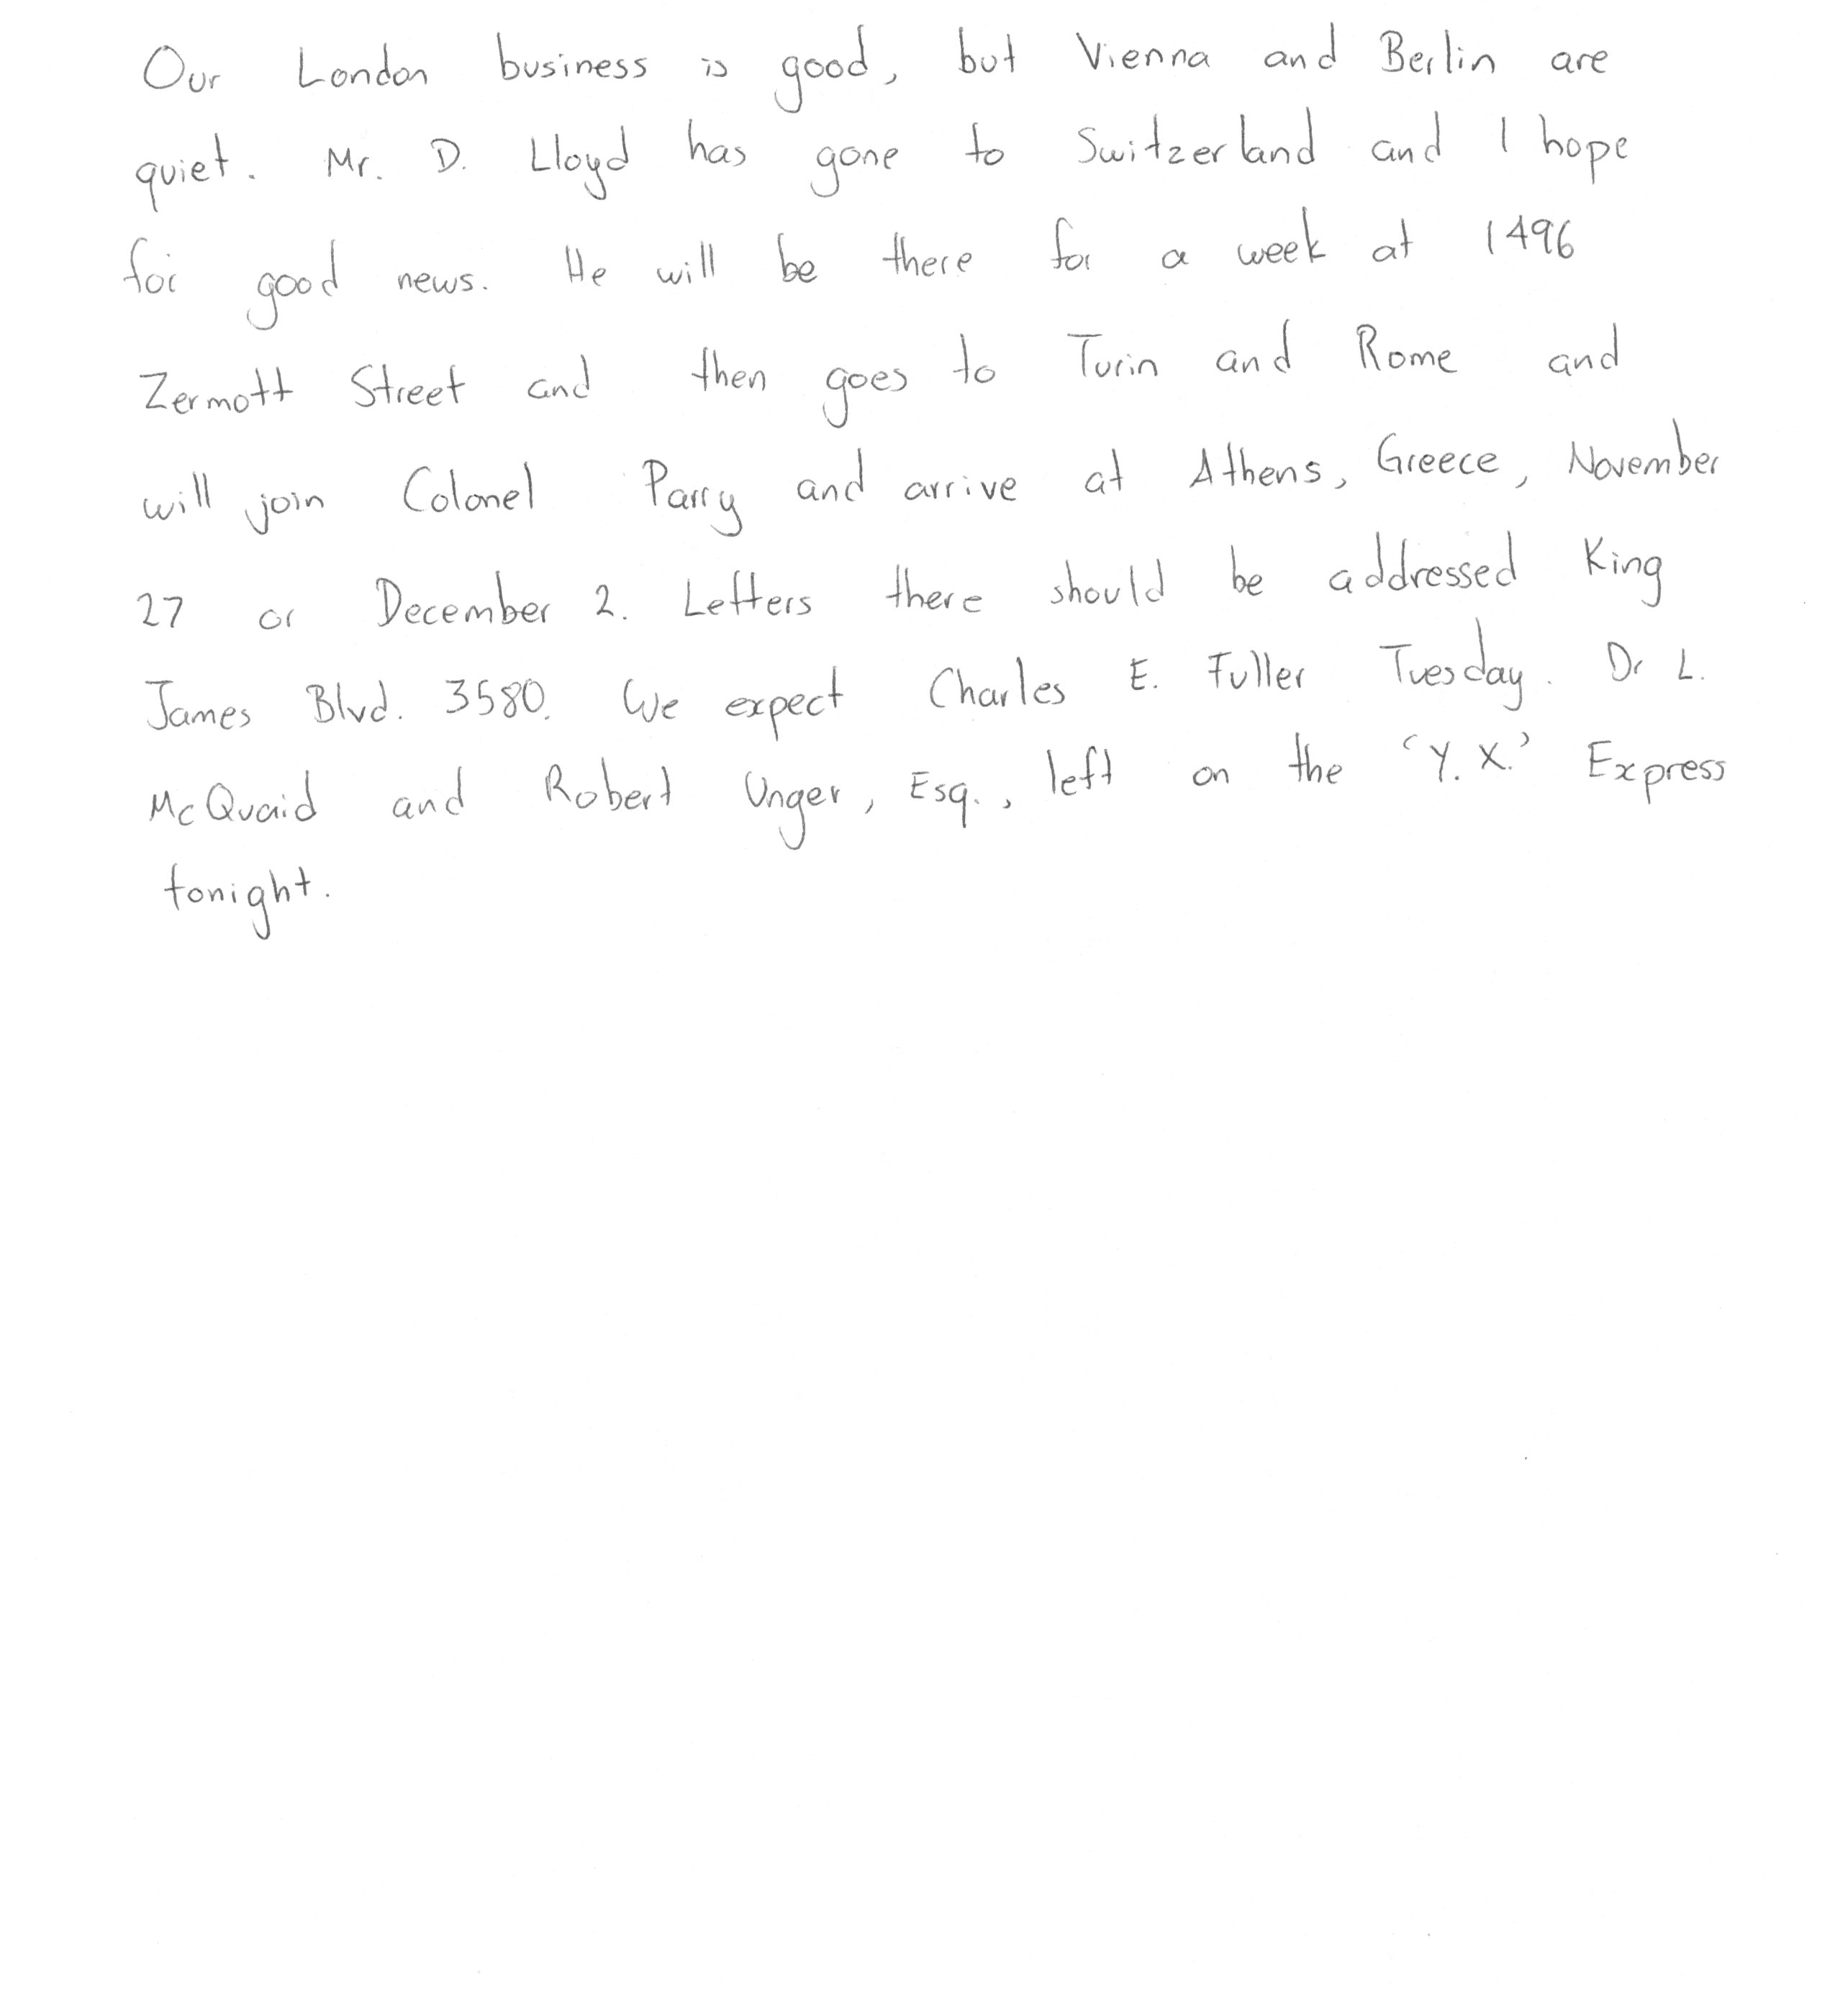 Our London business is good, but Vienna and Berlin are
quiet. Mr. D. Lloyd has gone to Switzerland and I hope
for good news. He will be there for a week at 1496
Zermott Street and then goes to Turin and Rome and
will join Colonel Parry and arrive at Athens, Greece, November
27 or December 2. Letters there should be addressed King
James Blvd. 3580. We expect Charles E. Fuller Tuesday. Dr L.
McQuaid and Robert Unger, Esq., left on the 'Y.X.' Express
tonight.